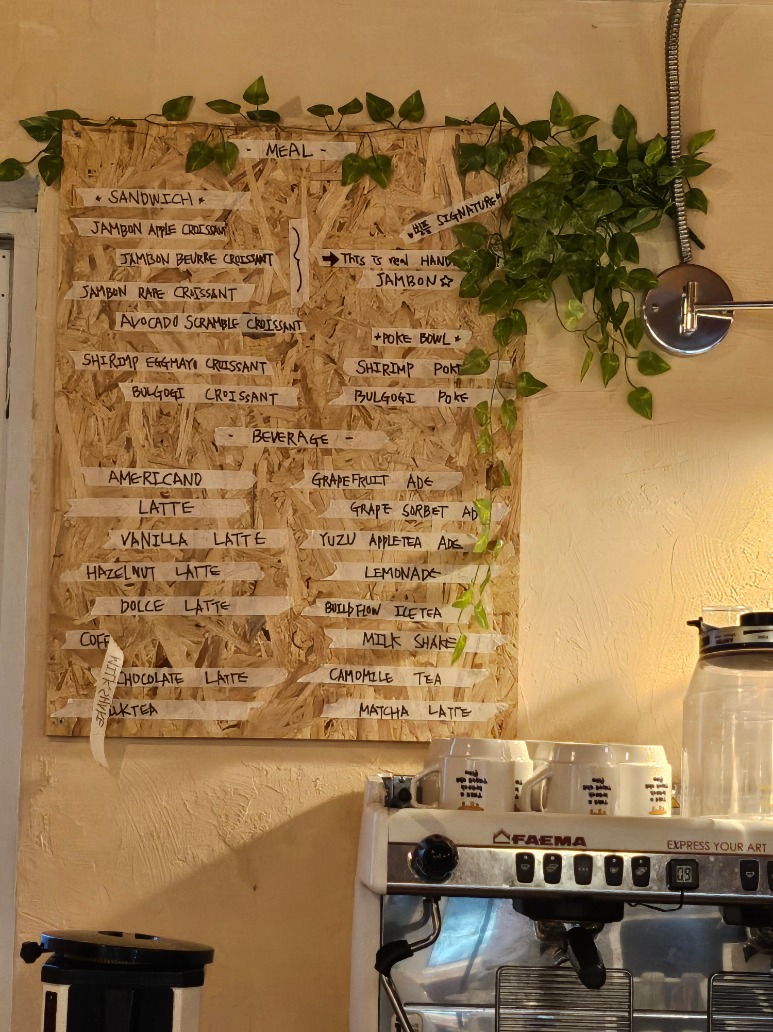 - MEAL -
* SANDWICH *
JAMBON APPLE CROISSANT
JAMBON BEURRE CROISSANT
JAMBON RAPE CROISSANT
AVOCADO SCRAMBLE CROISSANT
SHIRIMP EGGMAYO CROISSANT
BULGOGI CROISSANT
SIGNATURE
→ THIS is real HAND
JAMBON☆
*POKE BOWL*
SHIRIMP POKE
BULGOGI POKE
- BEVERAGE -
AMERICANO
LATTE
VANILLA LATTE
HAZELNUT LATTE
DOLCE LATTE
COFF
MILKSHAKE
CHOCOLATE LATTE
GRAPEFRUIT ADE
GRAPE SORBET AD
YUZU APPLETEA ADE
LEMONADE
BUILDFLOW ICETEA
MILK SHAKE
CAMOMILE TEA
MATCHA LATTE
FAEMA
EXPRESS YOUR ART
09